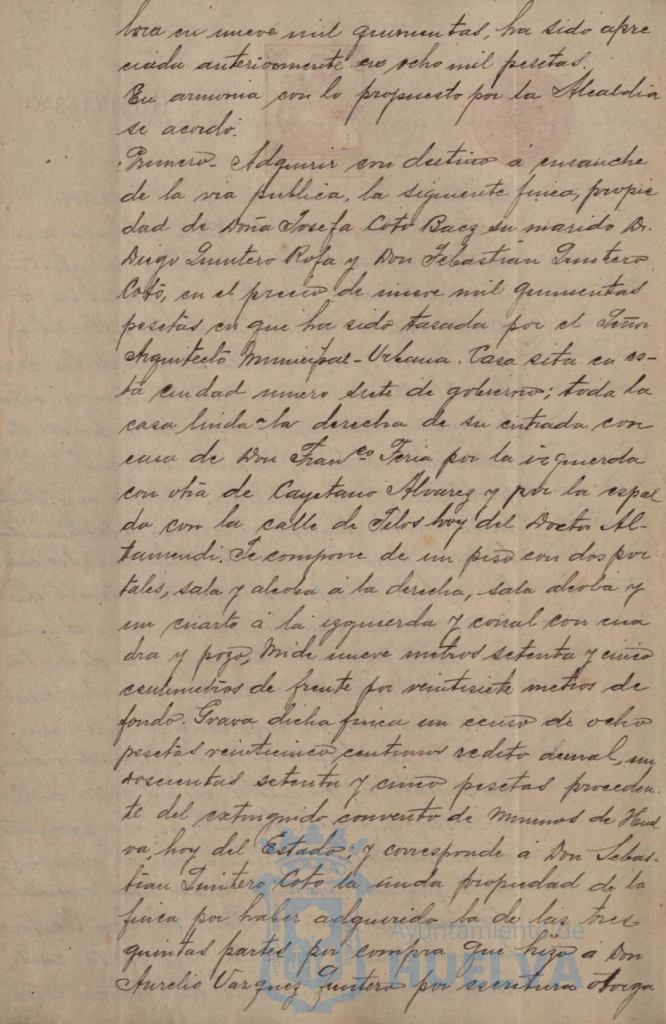 en nueve mil quinientas, ha sido apre
ciada anteriormente en ocho mil pesetas.
En armonia con lo propuesto por la Alcaldia
se acordó:
Primero- Adquirir con destino á ensanche
de la via publica, la siguiente finca, propie
dad de Doña Josefa Coto Baez su marido Dn.
Diego Quintero Rofa y Don Sebastián Quintero
Coto, en el precio de nueve mil quinientas
pesetas en que ha sido tasada por el Señor
Arquitecto Municipal-Urbana. Casa sita en es-
ta ciudad número siete de gobierno; toda la
casa linda á la derecha de su entrada con
casa de Don Franco Feria por la izquierda
con otra de Cayetano Alvarez y por la espal
da con la calle de Silos hoy del Doctor Al-
tamendi. Se compone de un piso con dos por-
tales, sala y alcoba á la derecha, sala alcoba y
un cuarto á la izquierda y corral con cua
dra y pozo, Mide nueve metros setenta y cinco
centimetros de frente por veintisiete metros de
fondo. Grava dicha finca un censo de ocho
pesetas veinticinco centimos redito anual, un
doscientas setenta y cinco pesetas proceden-
te del extinguido convento de Minimos de Huel
va, hoy del Estado; y corresponde á Don Sebas-
tian Quintero Coto la nuda propiedad de la
finca por haber adquirido la de las tres
quintas partes por compra que hizo á Don
Aurelio Vazquez Quintero por escritura otorga
Ayuntamiento de
HUELVA